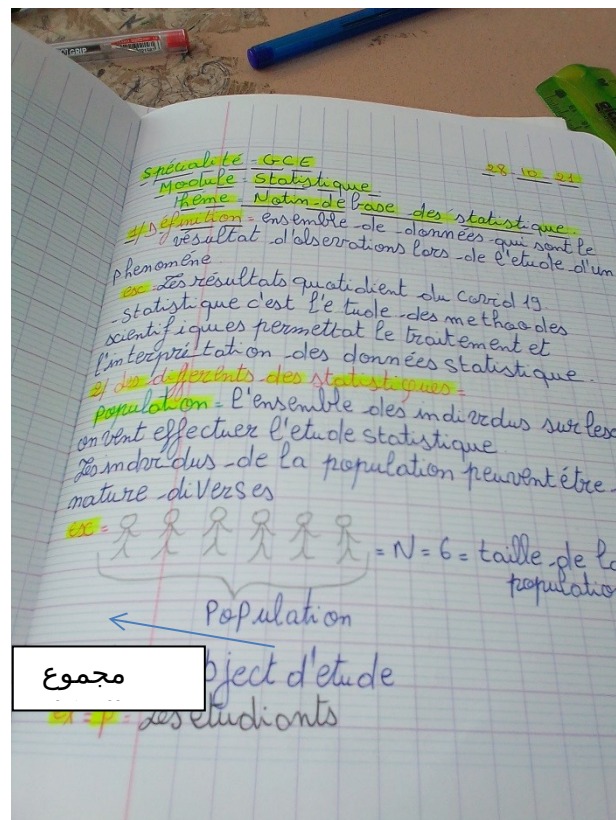 GRIP
Spécialité - GCE
28 10 21
Module : Statistique
thème : Notin-de base des statistique.
1/ Définition = ensemble de données qui sont le
résultat d'observations lors de l'etude d'un
phenomène
ex: Les résultats quatidient du covid 19
Statistique c'est l'e tude des methaodes
scientifiques permettat le traitement et
l'interpri_tation des données statistique.
2/ des differents des statistiques =
Population = l'ensemble des individus sur lesq
on vent effectuer l'etude statistique
Les individus de la population peuvent être
nature diverses
ex =
= N = 6 = taille de la
populatio
Population
مجموع
bject d'etude
ex = p = Les etudiants